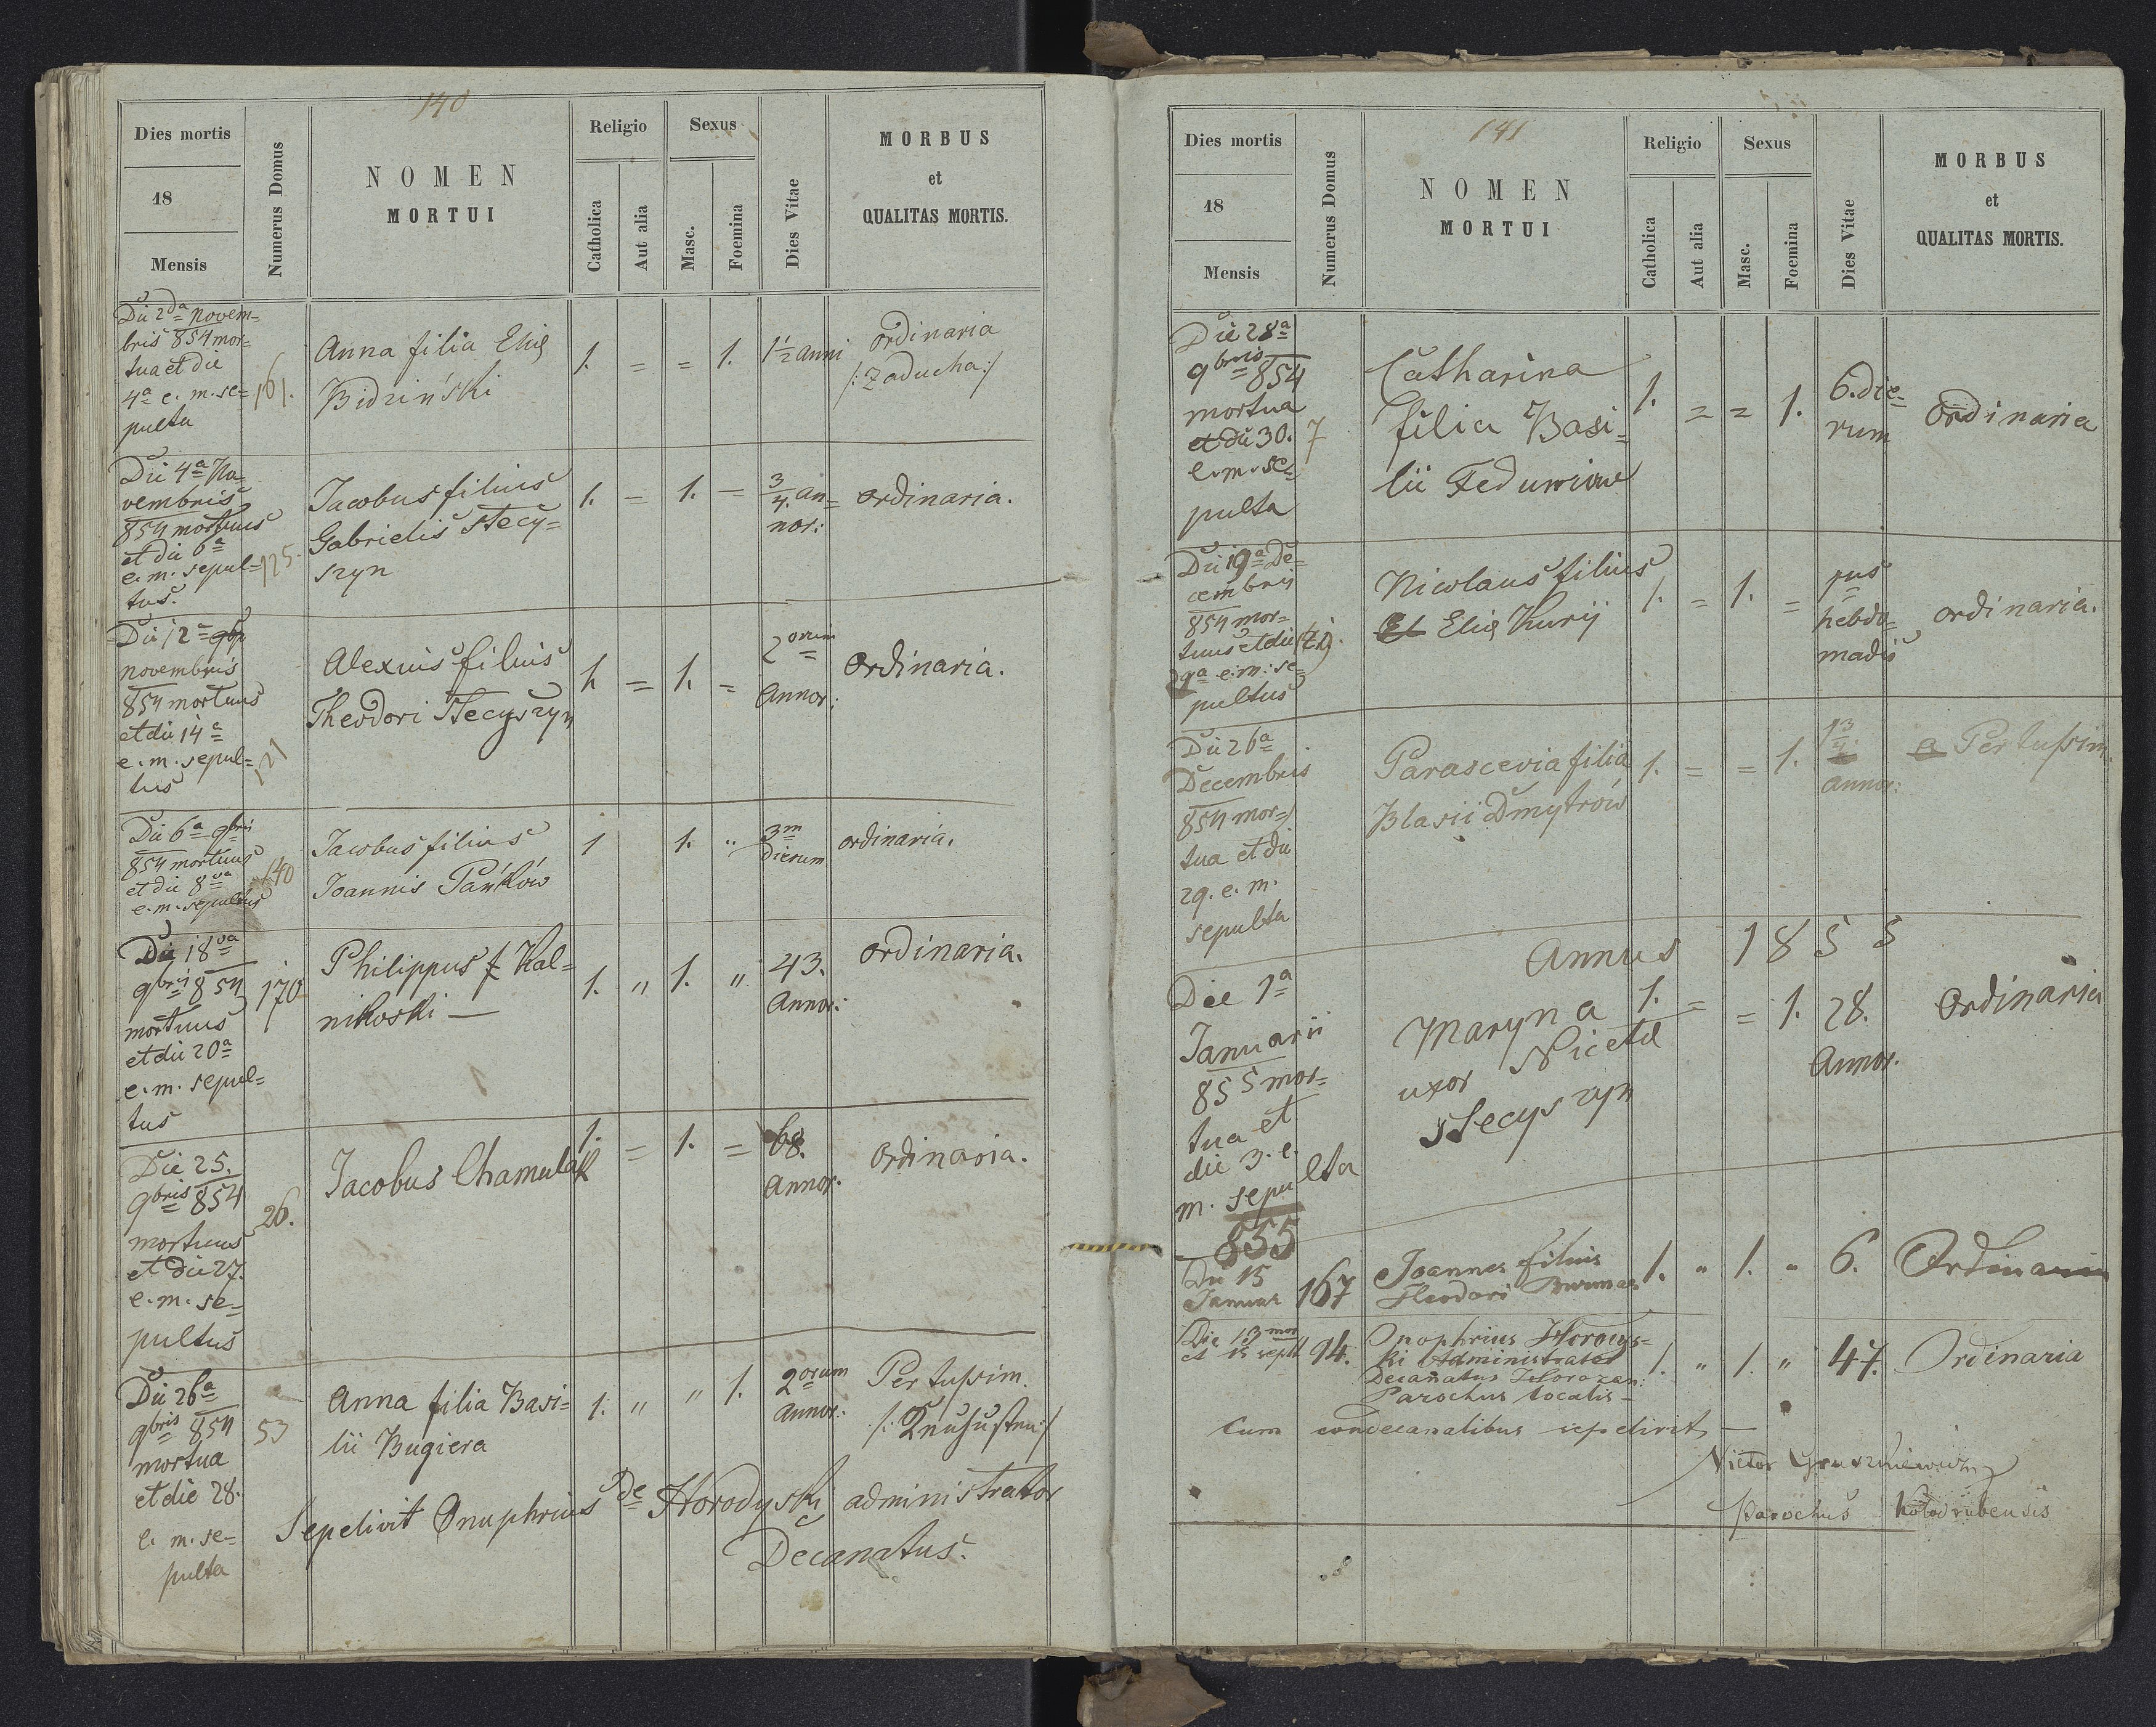 140
Dies mortis
18
Mensis
Numerus Domus
NOMEN
MORTUI
Religio
Catholica
Aut alia
Sexus
Masc.
Foemina
Dies Vitae
MORBUS
et
QUALITAS MORTIS.
Die 2da Novem=
bris 854 mor=
tua et die
4a e. m. se=
pulta
161.
Anna filia Elię
Bidziński
1. = = 1. 1½ anni
ordinaria
/:zaducha:/
Die 4a No=
vembris
854 mortuus
et die 6a
e. m. sepul=
tus.
125.
Jacobus filius
Gabrielis Stecy=
szyn
1. = 1. = 3/4 an=
nor:
ordinaria.
Die 12a
novembris
854 mortuus
et die 14a
e. m. sepul=
tus
121
Alexius filius
Theodori Stecyszyn
1. = 1. = 2orum
Annor:
ordinaria.
Die 6a 9bris
854 mortuus
et die 8va
e. m. sepultus
140
Jacobus filius
Joannis Pańków
1 1. " 3m
dierum
ordinaria.
Die 18va
9bris 854
mortuus
et die 20a
e. m. sepul=
tus
170
Philippus f Kal=
nikoski —
1. " 1. " 43.
Annor:
ordinaria.
Die 25.
9bris 854
mortuus
et die 27.
e. m. se=
pultus
26.
Jacobus Chamulak
1. = 1. = 68.
Annor.
ordinaria.
Die 26a
9bris 854
mortua
et die 28.
e. m. se=
pulta
53
Anna filia Basi=
lii Bugiera
1. " " 1. 2orum
Annor:
Pertussim.
Sepelivit Onuphrius de Horodyski administrator
Decanatus.
141
Dies mortis
18
Mensis
Numerus Domus
NOMEN
MORTUI
Religio
Catholica
Aut alia
Sexus
Masc.
Foemina
Dies Vitae
MORBUS
et
QUALITAS MORTIS.
Die 28a
9bris 854
mortua
et die 30.
e. m. se=
pulta
7
Catharina
filia Basi=
lii
1. = = 1. 6. die=
rum
Ordinaria
Die 19a De=
cembris
854 mor=
tuus et die
e. m. se=
pultus
Nicolaus filius
Elię Kurij
1. = 1. =
hebdo=
madis
ordinaria.
Die 26a
Decembris
854 mor=
tua et die
29. e. m.
sepulta
Parascevia filia
Blasii Dmytrów
1. = = 1. 1 3/4
annor:
Pertussim.
Annus 1855
Die 1a
Januarii
855 mor=
tua et
die 3. e.
m. sepulta
Maryna
uxor Nicetae
Stecyszyn
1. = = 1. 28.
Annor.
Ordinaria
855
Die 15
Januar
167
Joannes filius
Theodori
1. " 1. " 6. Ordinaria
Die 13 mor
et 15 sepult
94.
Onophrius Horodys=
ki Administrator
Decanatus Horozan:
Parochus localis —
1. " 1. " 47. Ordinaria
Cum condecanalibus sepelivit —
Victor
Parochus